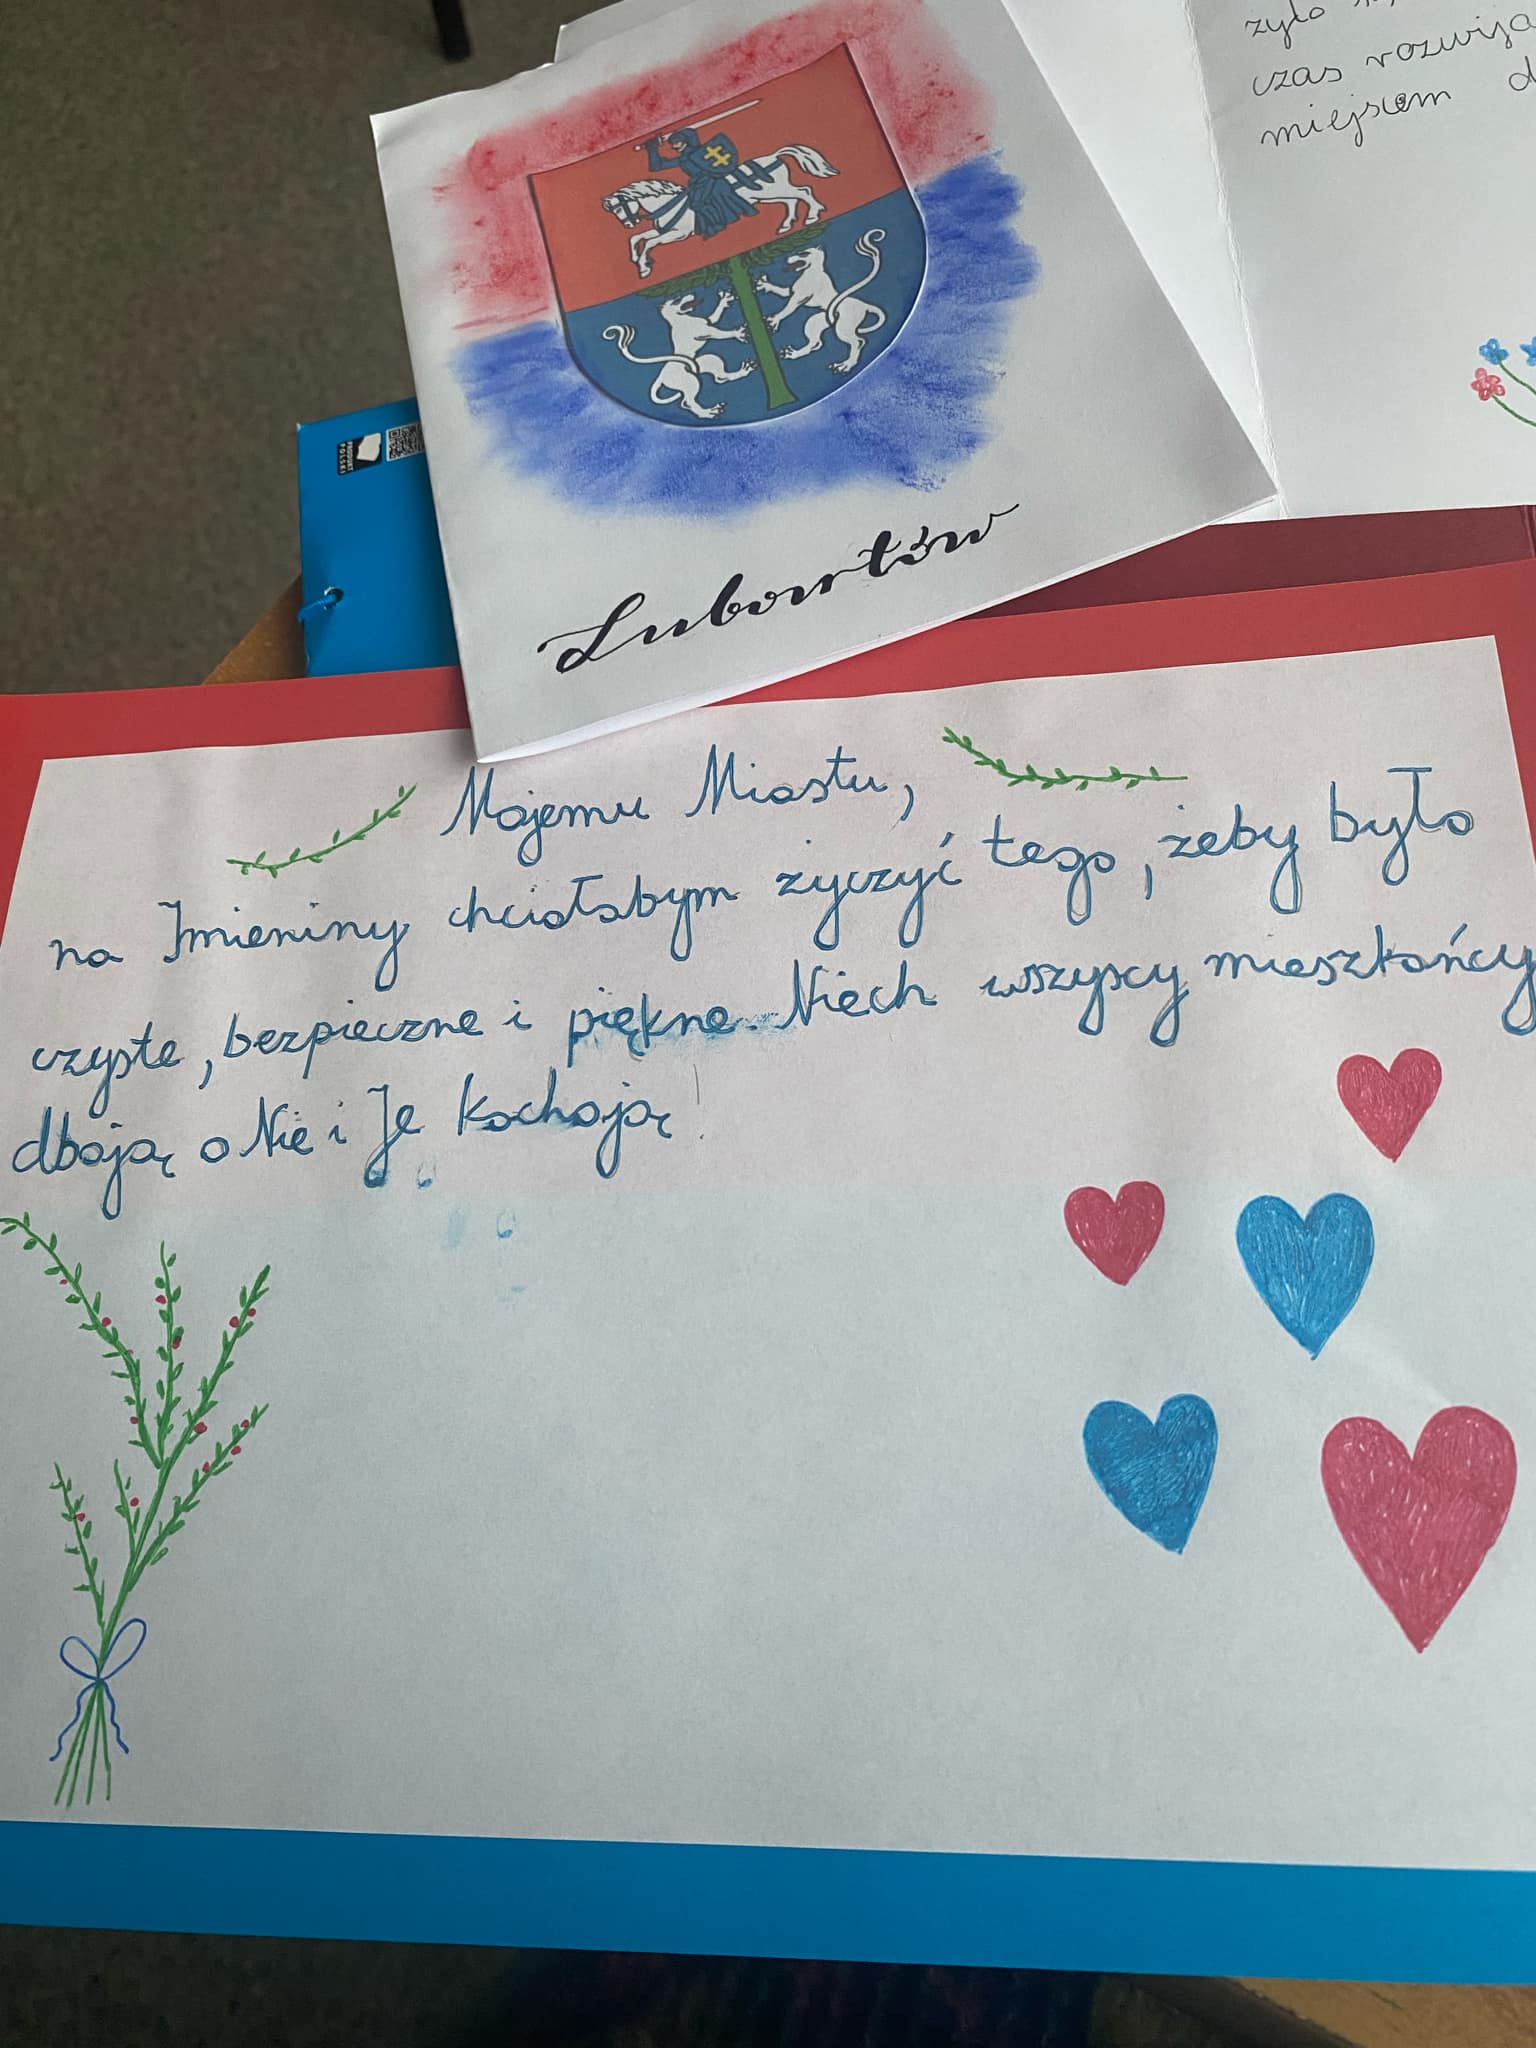 żyło
czas rozwija
miejscem d
PRODUKT
POLSKI
Lubartów
Mojemu Miastu,
na Imieniny chciałabym życzyć tego, żeby było
czyste, bezpieczne i piękne. Niech wszyscy mieszkańcy
dbają o Nie i Je kochają!